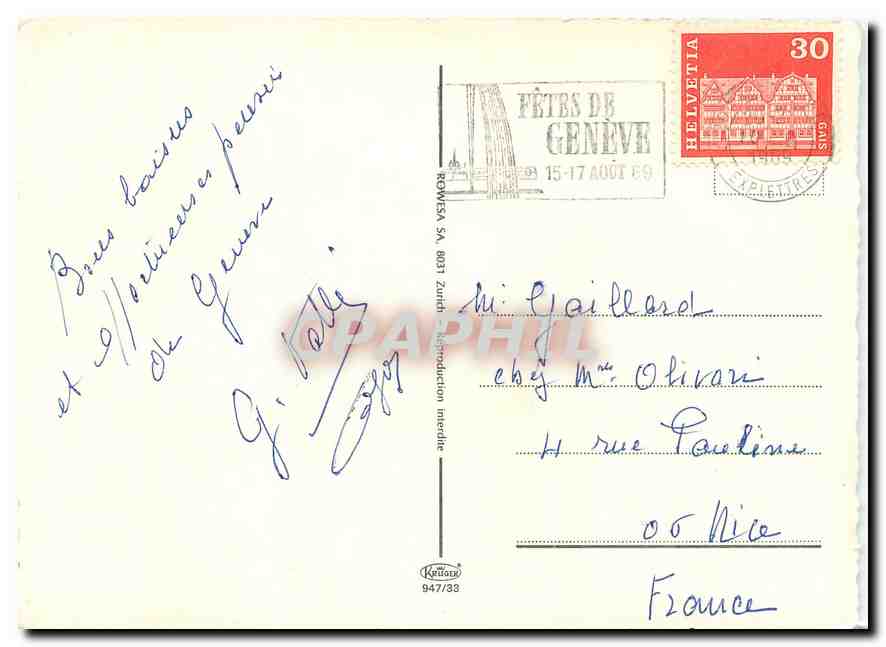 Bons baisers
et affectueuses pensées
de Genève
G.
FÊTES DE
GENÈVE
15-17 AOÛT 69
HELVETIA
30
GAIS
1969
EXP LETTRES
ROWESA SA, 8031 Zurich Reproduction interdite
CPAPHIL
Mr Gaillard
chez Mme Olivari
4 rue Pauline
06 Nice
France
KRÜGER
947/33